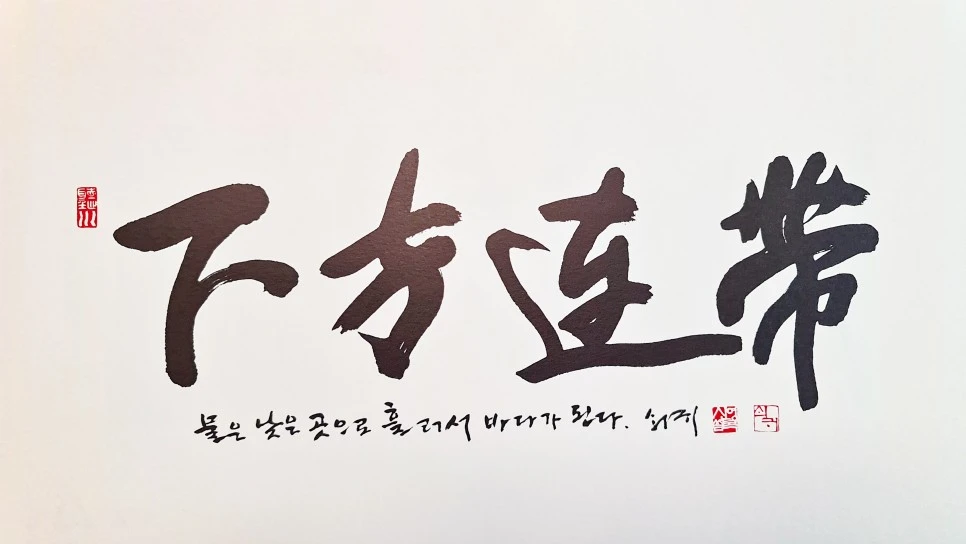 下方連帶
물은 낮은 곳으로 흘러서 바다가 됩니다. 쇠귀